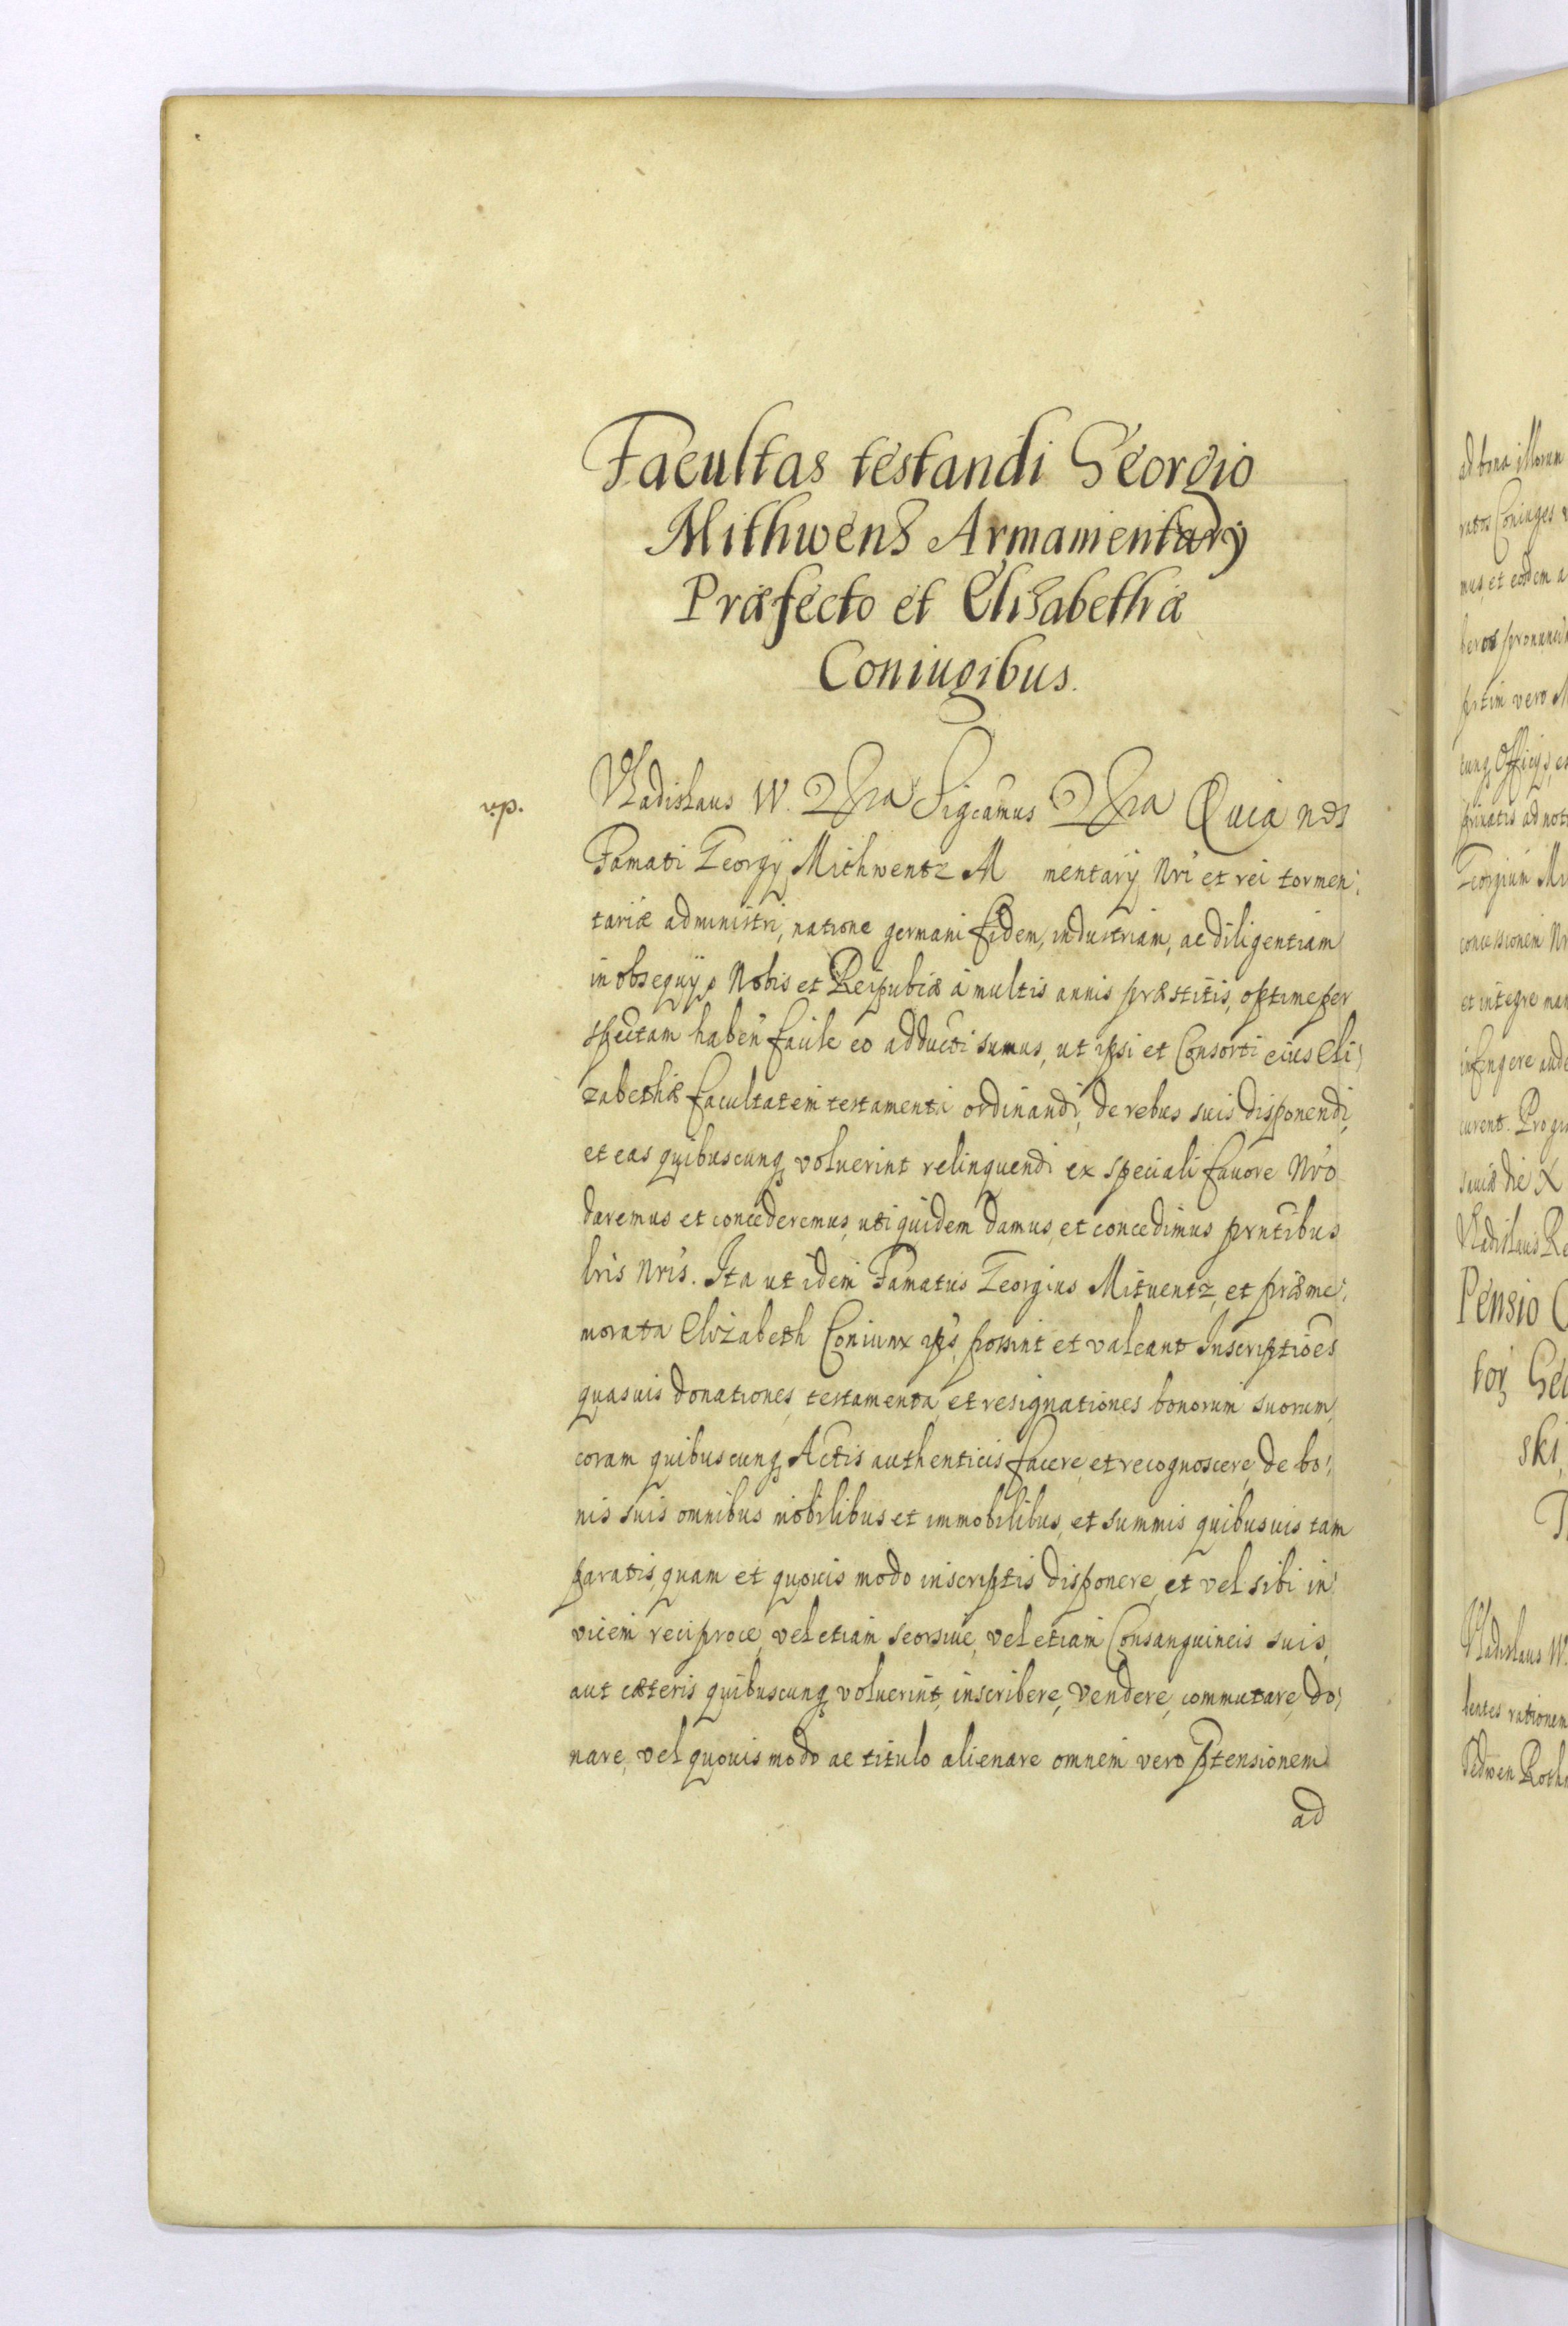 Facultas testandi Georgio
Mithwens Armamentary
Præfecto et Elisabethæ
Coniugibus.
Vladislaus IV. Sigcamus Quia nos
Famati Georgij Mithwentz M mentarij Nri et rei tormen:
tariæ administri, natione germani fidem, industriam, ac diligentiam
in obsequijs Nobis et Reipubcæ a multis annis præstitis, optime per
spectam haben facile eo adducti sumus, ut ipsi et Consorti eius Eli:
zabethæ facultatem testamenti ordinandi, de rebus suis disponendi,
et eas quibuscunq voluerint relinquendi ex speciali fauore Nro
daremus et concederemus, uti quidem damus, et concedimus prntibus
lris Nris. Ita ut idem Famatus Georgius Mituentz, et præme:
morata Elizabeth Coniunx ips, possint et valeant Inscriptiōes
quasuis donationes, testamenta, et resignationes bonorum suorum,
coram quibuscunq Actis authenticis facere, et recognoscere, de bo:
nis suis omnibus mobilibus et immobilibus, et summis quibusuis tam
paratis, quam et quouis modo inscriptis disponere, et vel sibi in
vicem reciproce, vel etiam seorsiue, vel etiam Consanguineis suis,
aut cæteris quibuscunq voluerint, inscribere, vendere, commutare, do:
nare, vel quouis modo ac titulo alienare omnem vero ptensionem
ad
ad bona illorum
mus, et eosdem a
Georgium Mi
concessionem Nr
et integre man
Vladislaus Re
Pensio
ski,
Vladislaus IV.